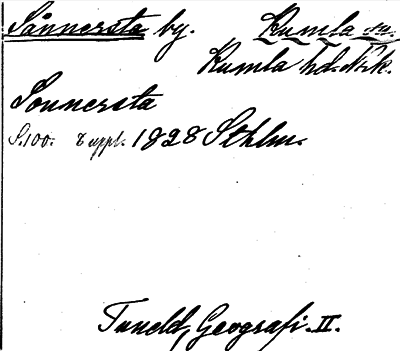 Sånnersta by. Kumla sn.
Kumla hd. Nrk.
Sonnersta
S.100. 8 uppl. 1828 Sthlm.
Tuneld, Geografi. II.